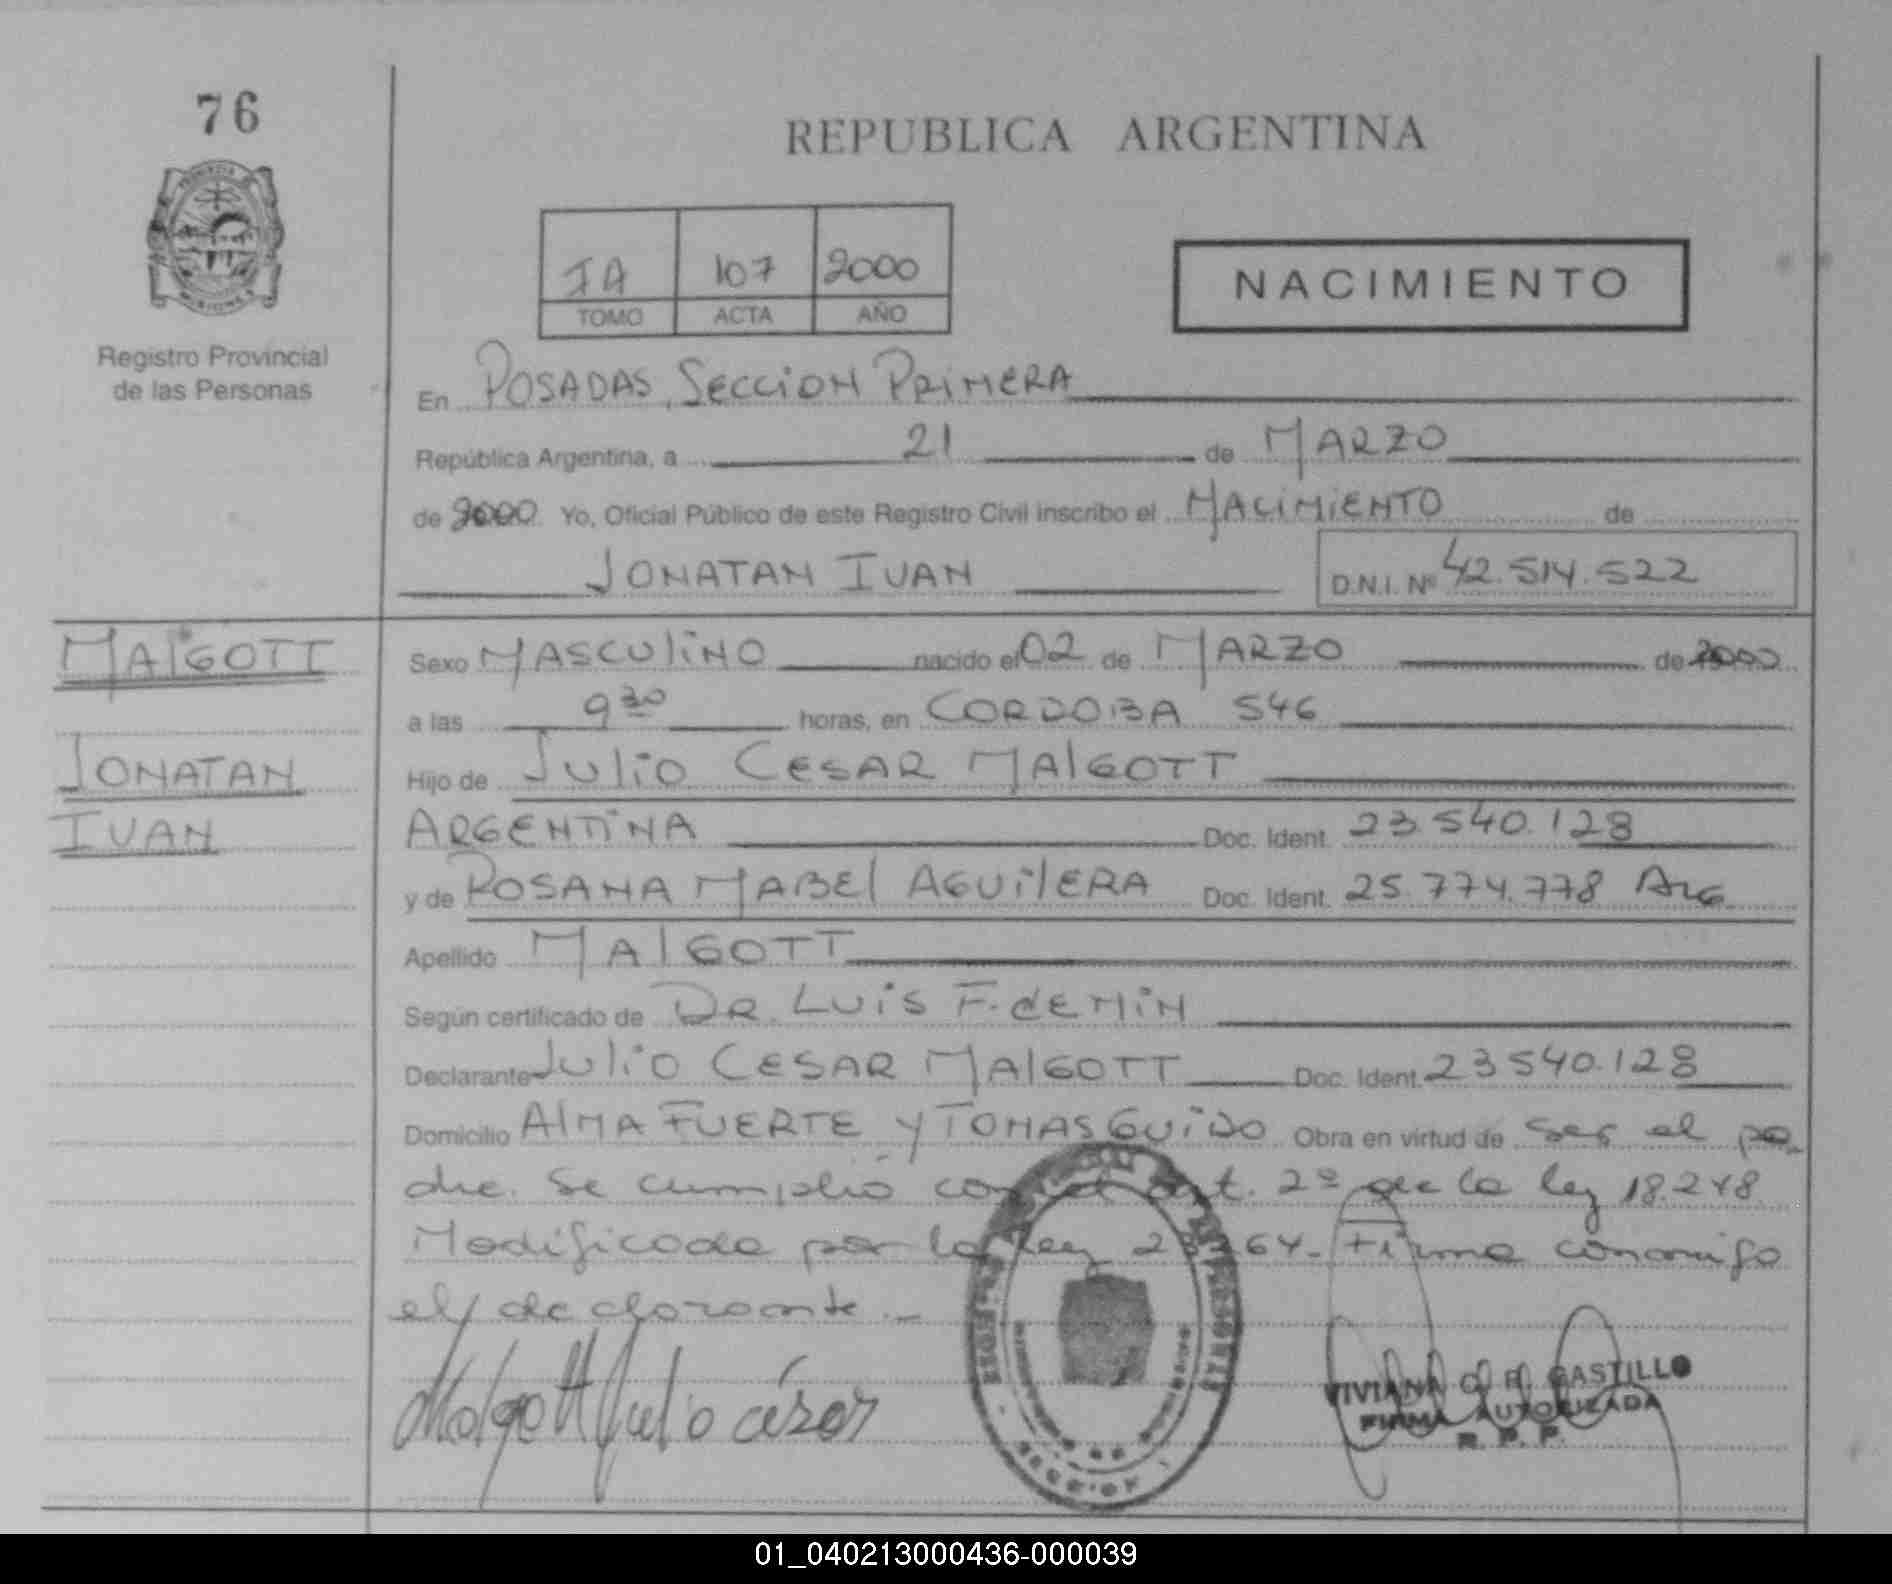 76
REPUBLICA ARGENTINA
107 2000
TOMO ACTA AÑO
NACIMIENTO
Registro Provincial
de las Personas
En POSADAS, SECCION PRIMERA
República Argentina, a 21 de MARZO
de 2000 Yo, Oficial Público de este Registro Civil inscribo el NACIMIENTO de
JONATAN IVAN D.N.I. Nº 42.514.522
MAlGOTT
JONATAN
IVAN
Sexo MASCULINO nacido el 02 de MARZO de 2000
a las 9 30 horas, en CORDOBA 546
Hijo de JUliO CESAR MAlGOTT
ARGENTINA Doc. Ident. 23.540.128
y de ROSANA MABEl AGUIlERA Doc. Ident. 25.774.778 ARG
Apellido MAlGOTT
Según certificado de DR. LUIS F.
Declarante JUliO CESAR MAlGOTT Doc. Ident. 23540.128
Domicilio AlMA FUERTE Y TOMAS GUIDO Obra en virtud de ser el pa
dre. Se cumplió con el art. 2º de la ley 18.248
Modificada por la ley 64. Firma conmigo
el declarante.-
Malgott Julio césar
VIVIANA CASTILLO
FIRMA AUTORIZADA
R. P. P.
01_040213000436-000039